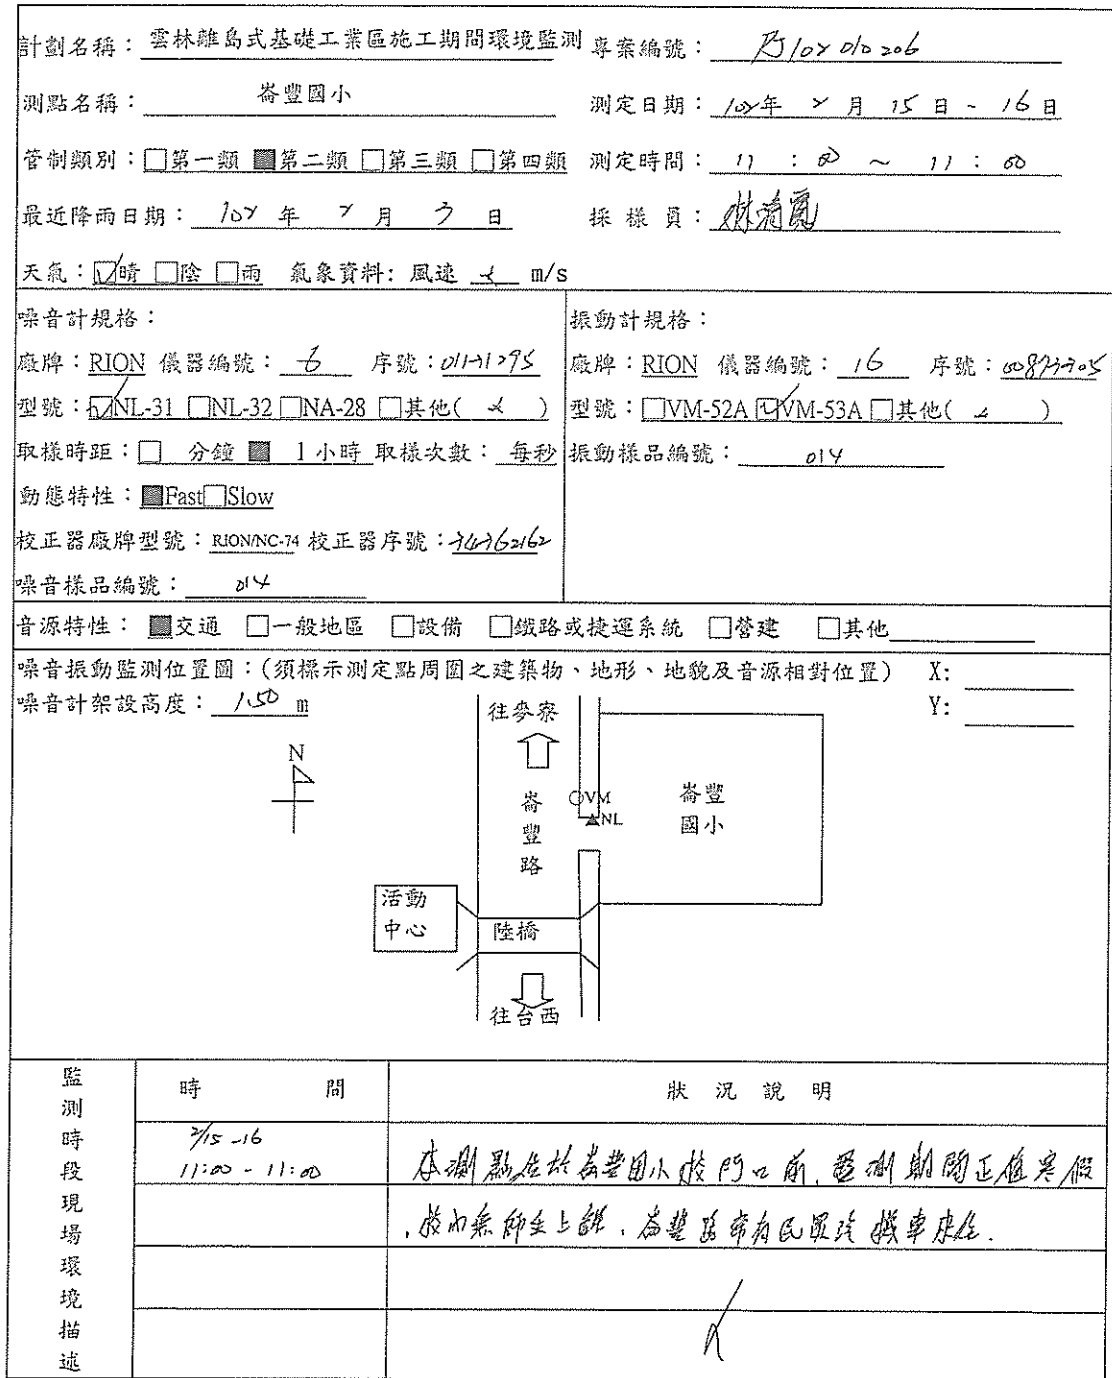 計劃名稱：雲林離島式基礎工業區施工期間環境監測 專案編號：PJ102010206
測點名稱：崙豐國小 測定日期：102年 2 月 15 日 ~ 16 日
管制類別：□第一類 ■第二類 □第三類 □第四類 測定時間：11 : 00 ~ 11 : 00
最近降雨日期：102 年 2 月 3 日 採樣員：
天氣：☑晴 □陰 □雨 氣象資料: 風速 m/s
噪音計規格：
廠牌：RION 儀器編號：6 序號：01171295
型號：☑NL-31 □NL-32 □NA-28 □其他( )
取樣時距：□ 分鐘 ■ 1小時 取樣次數：每秒
動態特性：■Fast□Slow
校正器廠牌型號：RION/NC-74 校正器序號：34362162
噪音樣品編號：014
振動計規格：
廠牌：RION 儀器編號：16 序號：
型號：□VM-52A ☑VM-53A □其他( )
振動樣品編號：014
音源特性：■交通 □一般地區 □設備 □鐵路或捷運系統 □營建 □其他
噪音振動監測位置圖：(須標示測定點周圍之建築物、地形、地貌及音源相對位置) X:
噪音計架設高度：1.50 m Y:
往麥寮
N
崙豐路
VM
NL
崙豐
國小
活動
中心
陸橋
往台西
監測時段現場環境描述
時 間
狀 況 說 明
2/15 -16
11:00 - 11:00
本測點位於崙豐國小校門口前，監測期間正值寒假
，校內無師生上課，崙豐路常有民眾騎機車來往.